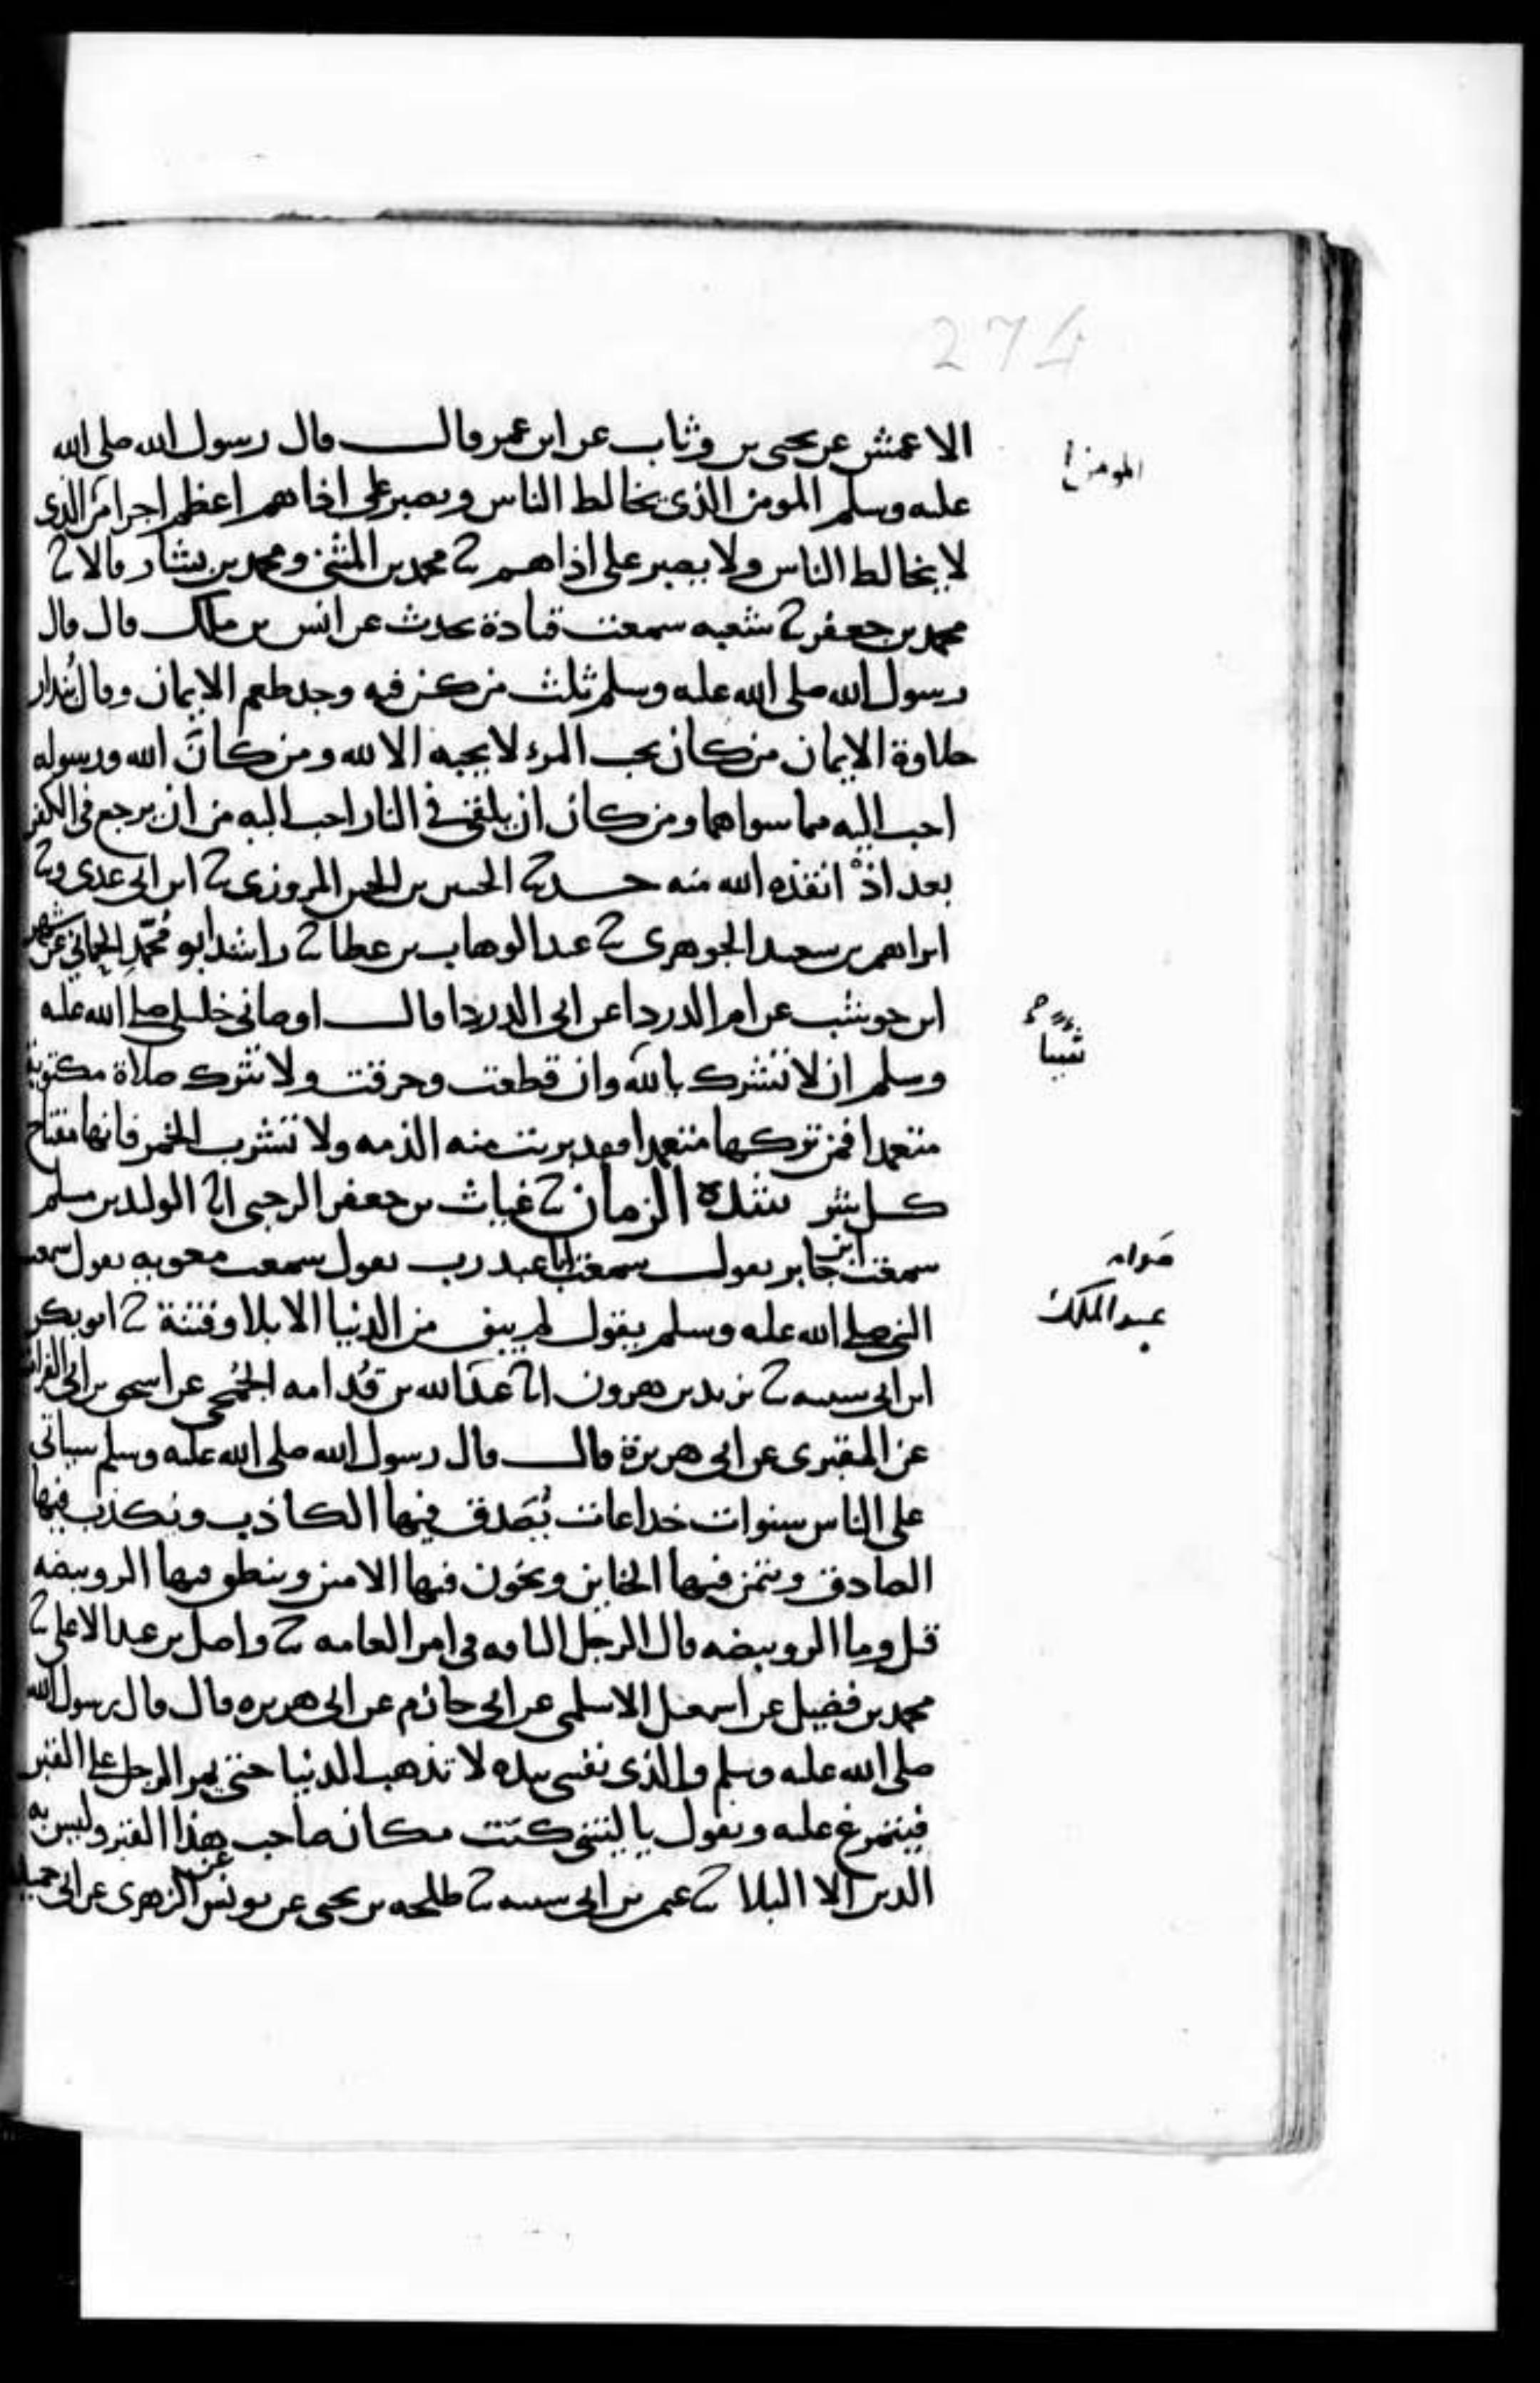 274
الاعمش عن يحيى بن وثاب عن ابن عمر قال قال رسول الله صلى الله
المومن
عليه وسلم المومن الذي يخالط الناس ويصبر على اذاهم اعظم اجرا من الذي
لا يخالط الناس ولا يصبر على اذاهم ثا محمد بن المثنى ومحمد بن بشار قالا ثا
محمد بن جعفر ثا شعبه سمعت قتادة يحدث عن انس بن ملك قال قال
رسول الله صلى الله عليه وسلم ثلث من كن فيه وجد طعم الايمان وقال بُندار
حلاوة الايمان من كان يحب المرء لا يحبه الا لله ومن كان الله ورسوله
احب اليه مما سواهما ومن كان ان يلقى في النار احب اليه من ان يرجع في الكفر
بعد اذْ انقذه الله منه حدثا الحسين بن الحسن المروزي ثا ابن ابي عدي وثا
ابراهيم بن سعيد الجوهري ثا عبد الوهاب بن عطا ثا راشد ابو مُحمّد الحماني عن شهر
ابن حوشب عن ام الدردا عن ابي الدردا قال اوصاني خليلي صلى الله عليه
شيئا
وسلم ان لا تشرك بالله وان قطعت وحرقت ولا تترك صلاة مكتوبة
متعمدا فمن تركها متعمدا فقد بريت منه الذمه ولا تشرب الخمر فانها مفتاح
كل شر شدة الزمان ثا غياث بن جعفر الرحبي انا الوليد بن مسلم
سمعت ابن جابر يقول سمعت ابا عبد رب يقول سمعت معويه يقول سمعت
صوابه
عبد الملك
النبي صلى الله عليه وسلم يقول لم يبق من الدنيا الا بلا وفتنة ثا ابو بكر
ابن ابي شيبه ثا يزيد بن هرون انا عبد الله بن قُدامه الجُمحي عن اسحق بن ابي الفرات
عن المقبري عن ابي هريرة قال قال رسول الله صلى الله عليه وسلم سياتي
على الناس سنوات خداعات يُصَدق فيها الكاذب ويكذب فيها
الصادق ويتمن فيها الخاين ويخون فيها الامين وينطق فيها الرويبضه
قيل وما الرويبضه قال الرجل التافه في امر العامه ثا واصل بن عبد الاعلى ثا
محمد بن فضيل عن اسمعيل الاسلمي عن ابي حازم عن ابي هريره قال قال رسول الله
صلى الله عليه وسلم والذي نفسي بيده لا تذهب الدنيا حتى يمر الرجل على القبر
فيتمرغ عليه ويقول يا ليتني كنت مكان صاحب هذا القبر وليس به
الدين الا البلا ثا عثمن بن ابي شيبه ثا طلحه بن يحيى عن يونس عن الزهري عن ابي حميد